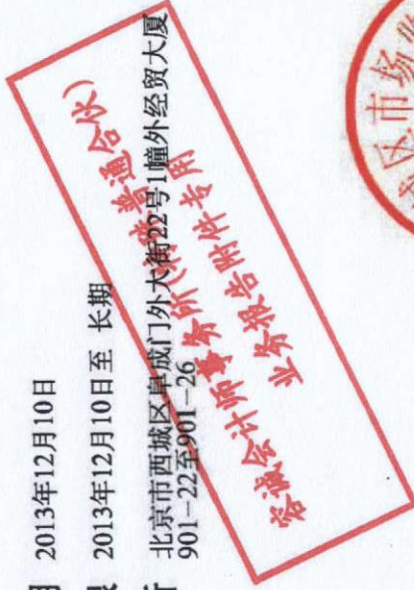 期 2013年12月10日
限 2013年12月10日至 长期
所 北京市西城区阜成门外大街22号1幢外经贸大厦
901-22至901-26
容诚会计师事务所(特殊普通合伙)
业务报告附件专用
城区市场